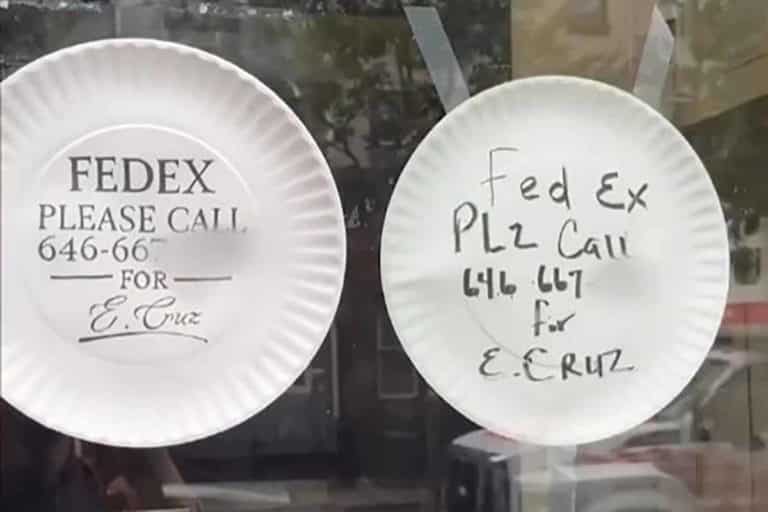 FEDEX
PLEASE CALL
646-667
FOR
E. Cruz
Fed Ex
PLZ Call
646 667
for
E. CRUZ